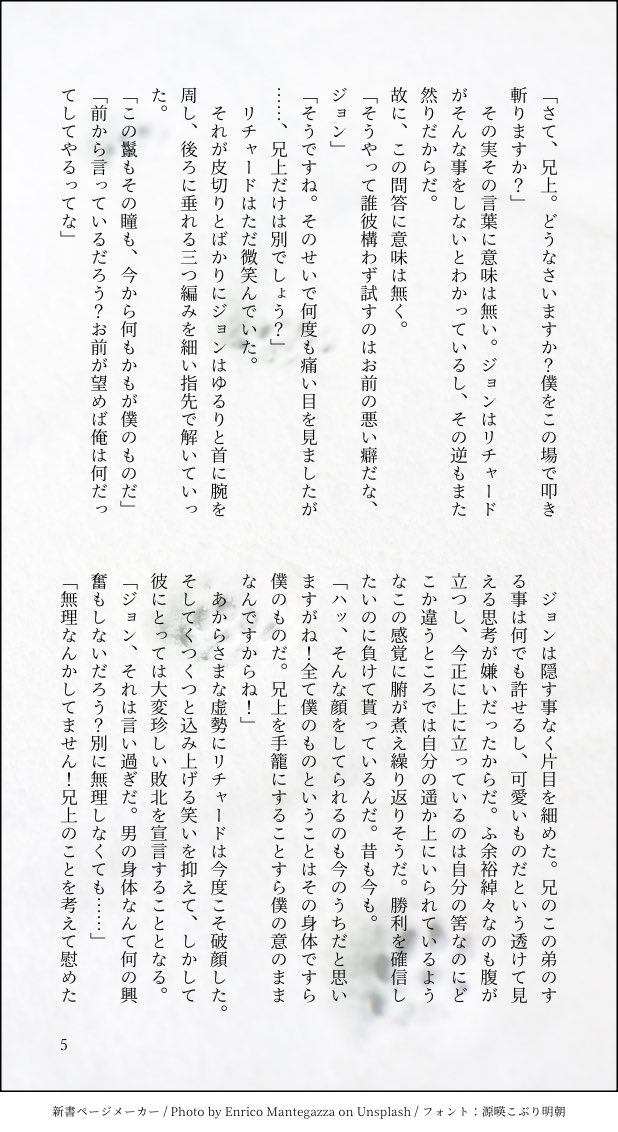 「さて、兄上。どうなさいますか？僕をこの場で叩き
斬りますか？」
　その実その言葉に意味は無い。ジョンはリチャード
がそんな事をしないとわかっているし、その逆もまた
然りだからだ。
故に、この問答に意味は無く。
「そうやって誰彼構わず試すのはお前の悪い癖だな、
ジョン」
「そうですね。そのせいで何度も痛い目を見ましたが
……、兄上だけは別でしょう？」
　リチャードはただ微笑んでいた。
　それが皮切りとばかりにジョンはゆるりと首に腕を
周し、後ろに垂れる三つ編みを細い指先で解いていっ
た。
「この鬣もその瞳も、今から何もかもが僕のものだ」
「前から言っているだろう？お前が望めば俺は何だっ
てしてやるってな」
　ジョンは隠す事なく片目を細めた。兄のこの弟のす
る事は何でも許せるし、可愛いものだという透けて見
える思考が嫌いだったからだ。ふ余裕綽々なのも腹が
立つし、今正に上に立っているのは自分の筈なのにど
こか違うところでは自分の遥か上にいられているよう
なこの感覚に腑が煮え繰り返りそうだ。勝利を確信し
たいのに負けて貰っているんだ。昔も今も。
「ハッ、そんな顔をしてられるのも今のうちだと思い
ますがね！全て僕のものということはその身体ですら
僕のものだ。兄上を手籠にすることすら僕の意のまま
なんですからね！」
　あからさまな虚勢にリチャードは今度こそ破顔した。
そしてくつくつと込み上げる笑いを抑えて、しかして
彼にとっては大変珍しい敗北を宣言することとなる。
「ジョン、それは言い過ぎだ。男の身体なんて何の興
奮もしないだろう？別に無理しなくても……」
「無理なんかしてません！兄上のことを考えて慰めた
5
新書ページメーカー / Photo by Enrico Mantegazza on Unsplash / フォント：源暎こぶり明朝